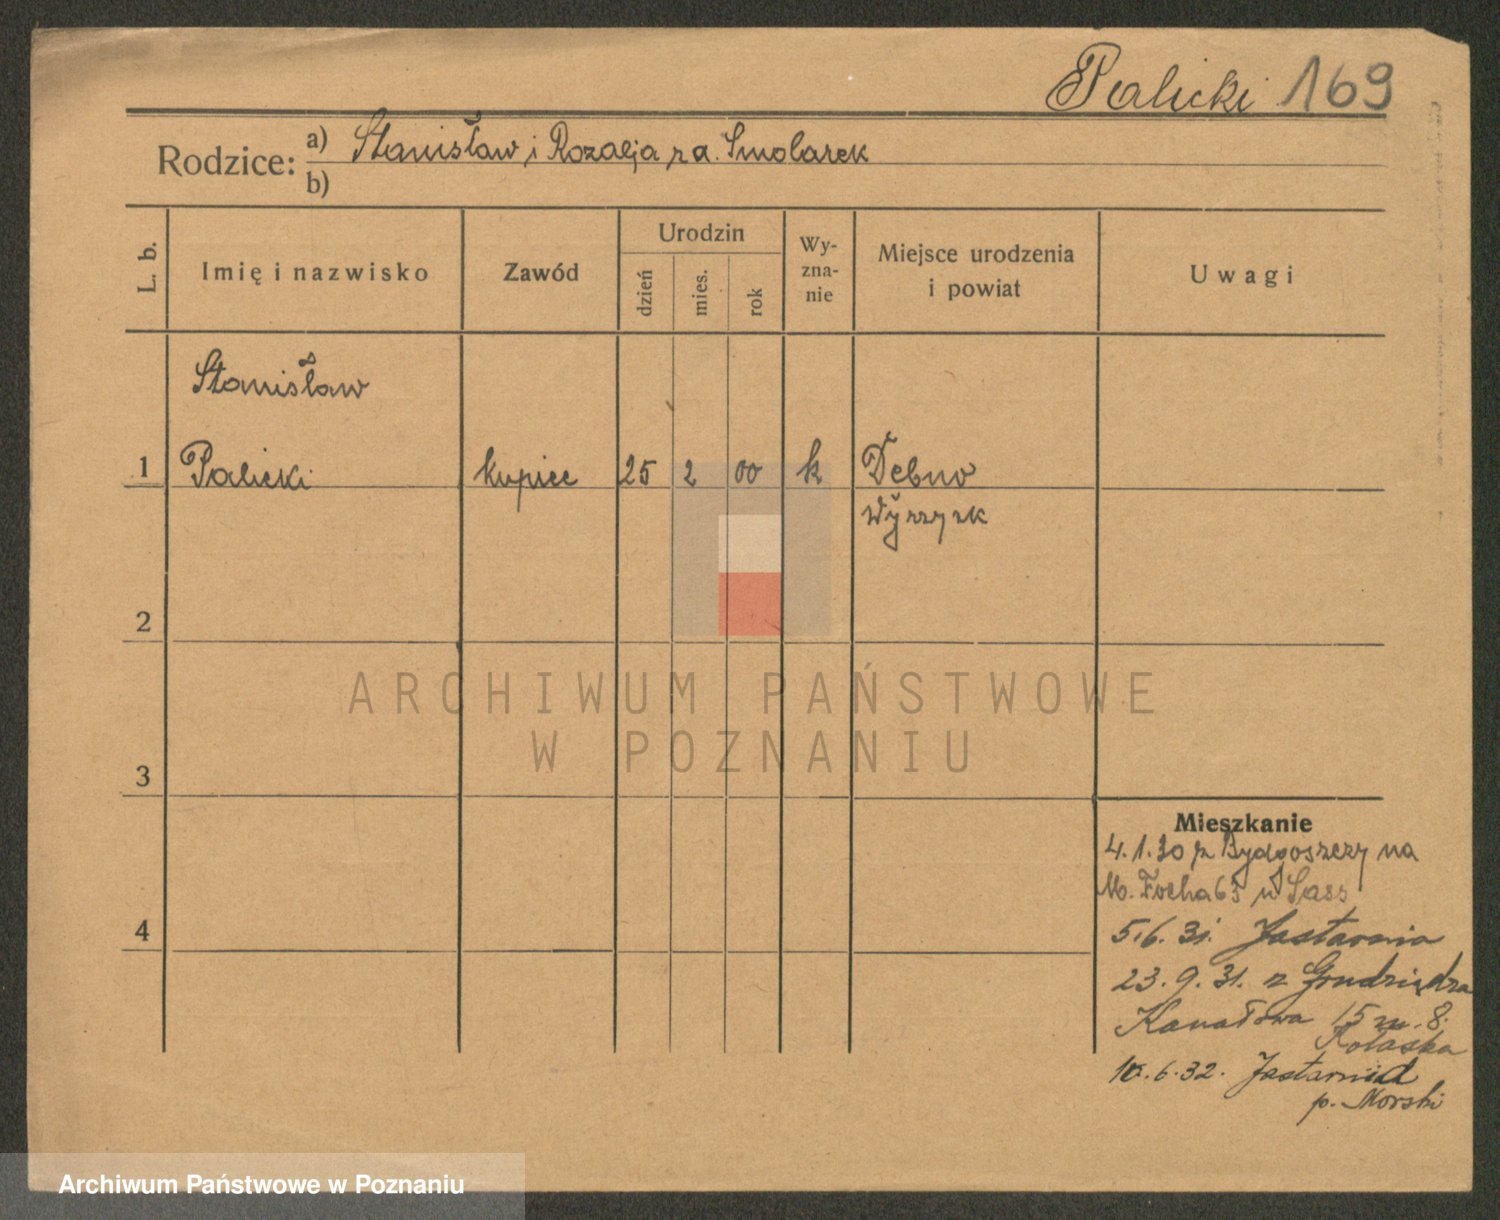 Palicki 169
Rodzice: a) Stanisław i Rozalja z d. Smolarek
b)
L. b.
Imię i nazwisko
Zawód
Urodzin
dzień
mies.
rok
Wy-
zna-
nie
Miejsce urodzenia
i powiat
Uwagi
Stanisław
1 Palicki kupiec 25 2 00 k Debno
Wyrzysk
2
3
4
ARCHIWUM PAŃSTWOWE
W POZNANIU
Mieszkanie
4.1.30 z Bydgoszczy na
M. Focha 65 u Sass
5.6.31. Jastarnia
23.9.31. z Grudziądza
Kanałowa 15 m. 8.
10.6.32. Jastarnia
p. Morski
Archiwum Państwowe w Poznaniu